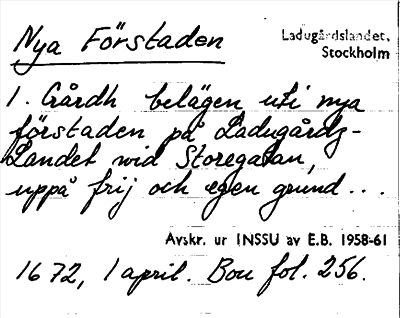 Nya Förstaden
Ladugårdslandet,
Stockholm
1. Gårdh belägen uti nya
förstaden på Ladugårdz-
Landet wid Storegatan,
uppå frij och egen grund...
Avskr. ur INSSU av E.B. 1958-61
1672, 1 april. Bou fol. 256.